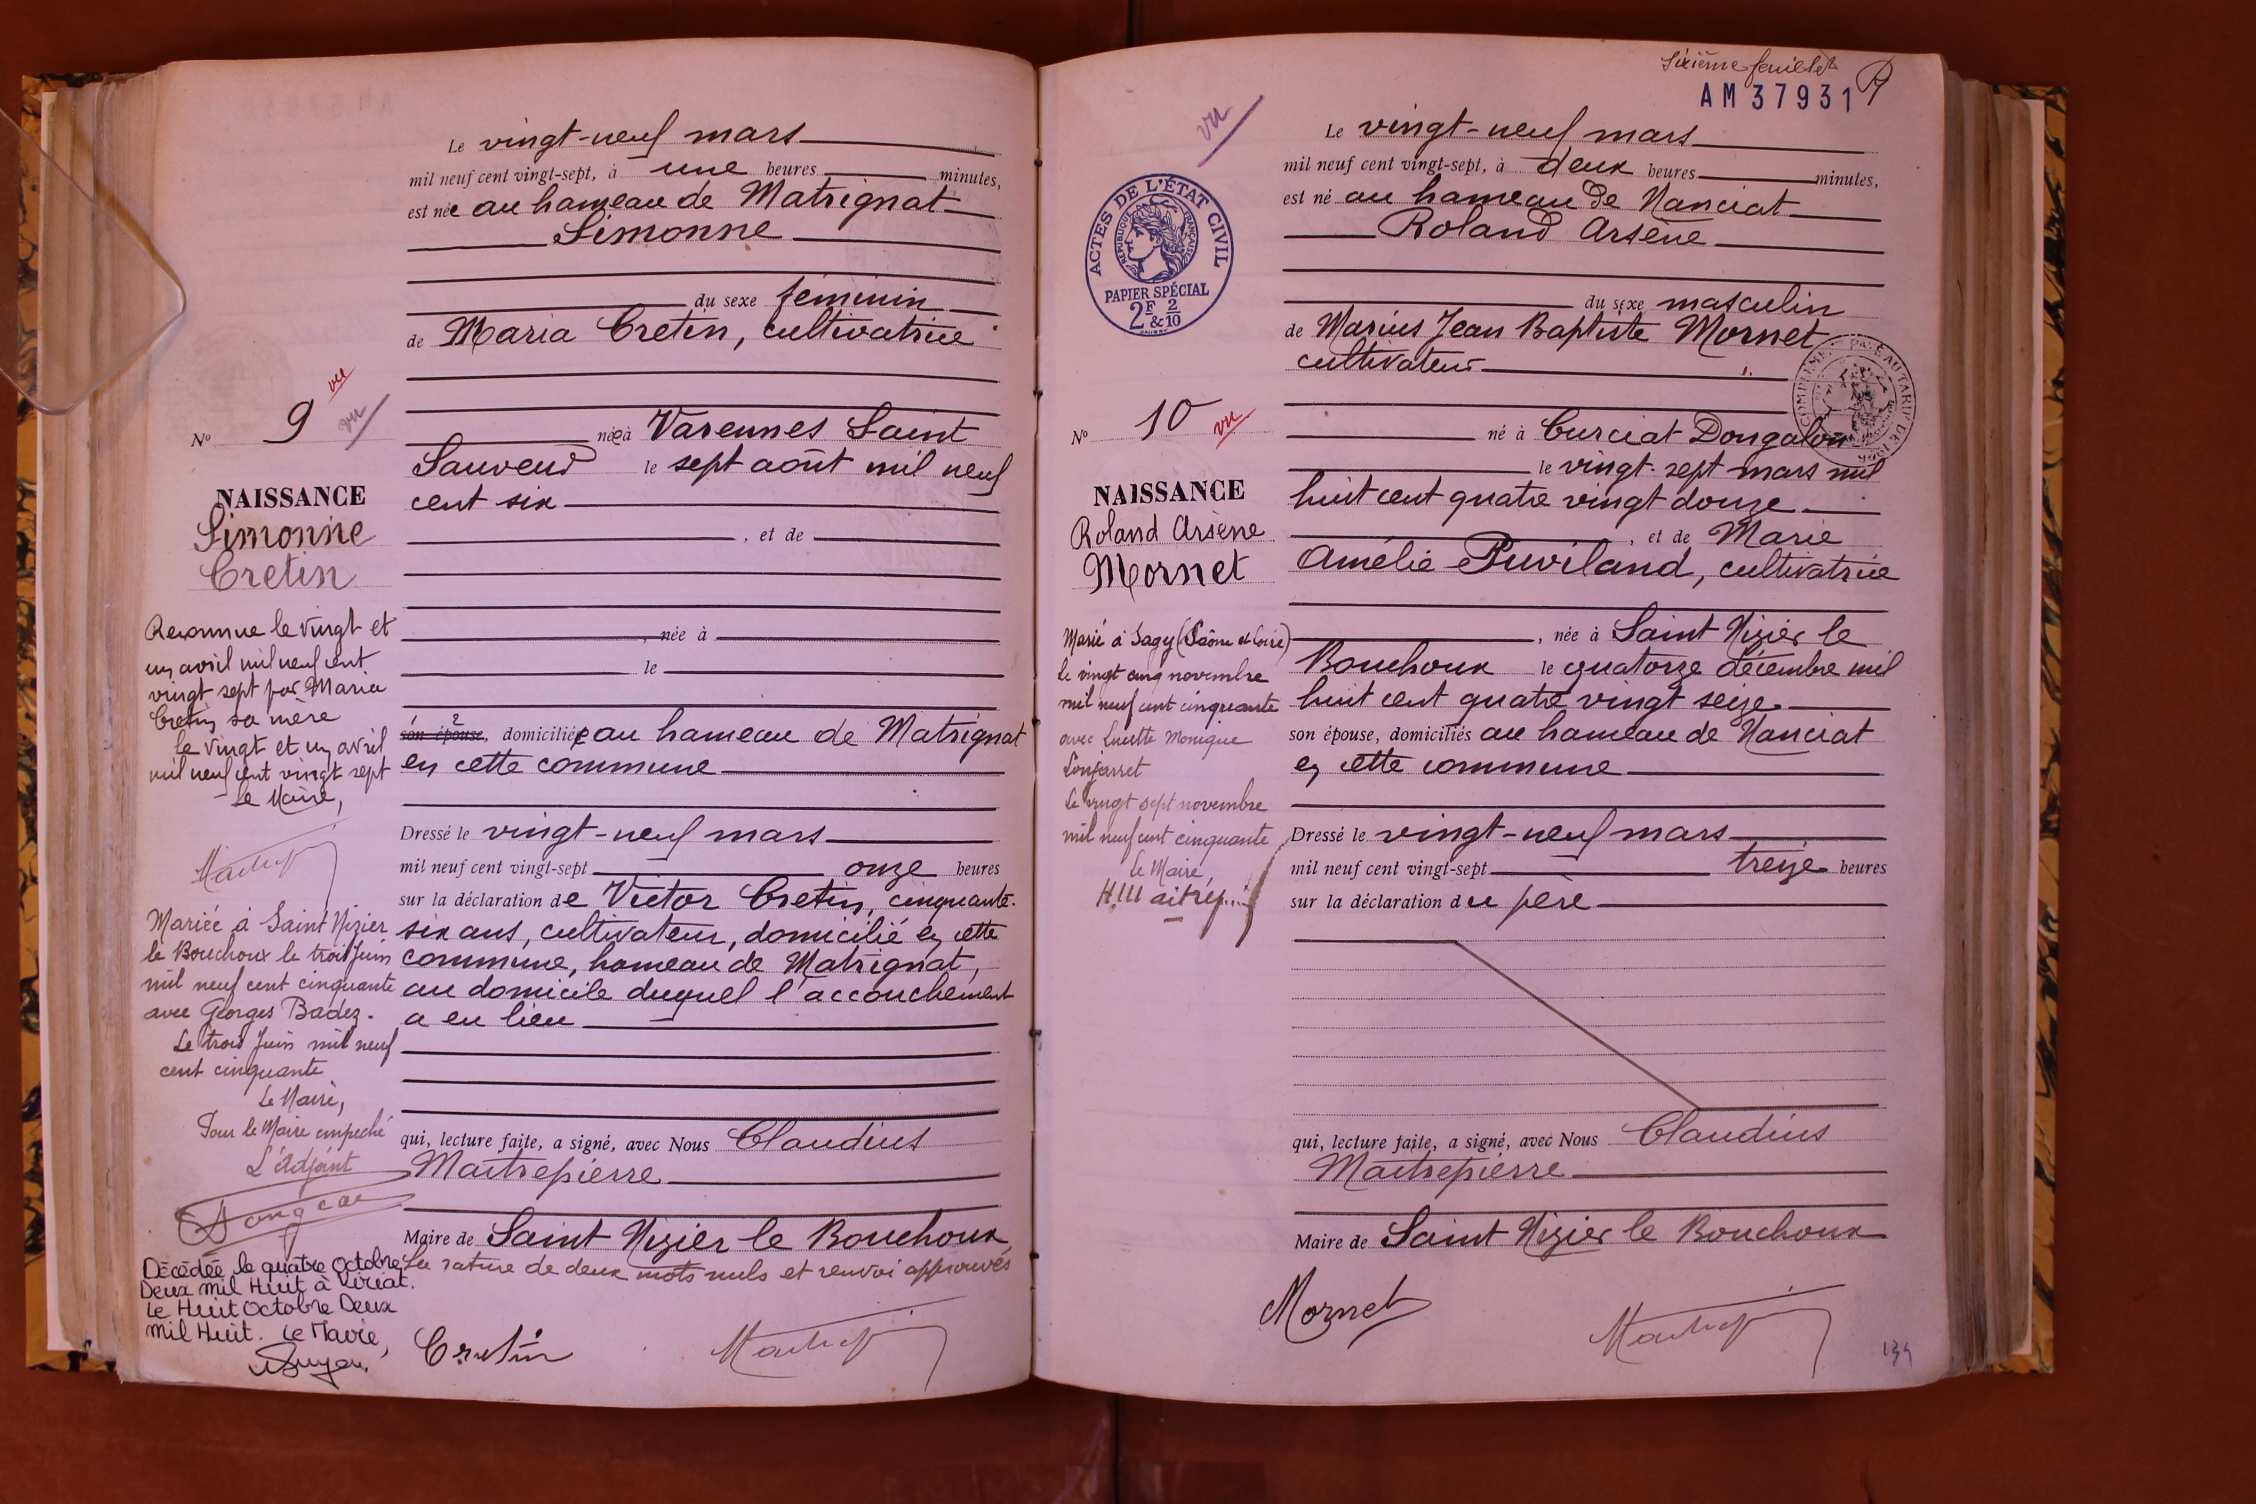 Le vingt-neuf mars
mil neuf cent vingt-sept, à une heures minutes,
est née au hameau de Matrignat
Simonne
du sexe féminin
de Maria Cretin, cultivatrice
née à Varennes Saint
Sauveur le sept août mil neuf
cent six
, et de
, née à
le
son épouse, domiciliée au hameau de Matrignat
en cette commune
Dressé le vingt-neuf mars
mil neuf cent vingt-sept onze heures
sur la déclaration de Victor Cretin, cinquante-
six ans, cultivateur, domicilié en cette
commune, hameau de Matrignat,
au domicile duquel l'accouchement
a eu lieu
qui, lecture faite, a signé, avec Nous Claudius
Maitrepierre
Maire de Saint Nizier le Bouchoux
La rature de deux mots nuls et renvoi approuvés
Cretin
vu
vu
N° 9
NAISSANCE
Simonne
Cretin
Reconnue le vingt et
un avril mil neuf cent
vingt sept par Maria
Cretin sa mère
le vingt et un avril
mil neuf cent vingt sept
Le Maire,
Mariée à Saint Nizier
le Bouchoux le trois Juin
mil neuf cent cinquante
avec Georges Badez.
Le trois Juin mil neuf
cent cinquante
Le Maire,
Pour le Maire empeché
L'Adjoint
Décédée le quatre Octobre
Deux mil Huit à Viriat.
Le Huit Octobre Deux
mil Huit. Le Maire,
Sixième feuillet
AM 37931
vu
Le vingt-neuf mars
mil neuf cent vingt-sept, à deux heures minutes,
est né au hameau de Nanciat
Roland Arsène
du sexe masculin
de Marius Jean Baptiste Mornet
cultivateur
né à Curciat Dongalon
le vingt-sept mars mil
huit cent quatre vingt douze
, et de Marie
Amélie Puviland, cultivatrice
, née à Saint Nizier le
Bouchoux le quatorze décembre mil
huit cent quatre vingt seize
son épouse, domiciliés au hameau de Nanciat
en cette commune
Dressé le vingt-neuf mars
mil neuf cent vingt-sept treize heures
sur la déclaration du père
qui, lecture faite, a signé, avec Nous Claudius
Maitrepierre
Maire de Saint Nizier le Bouchoux
Mornet
ACTES DE L'ÉTAT CIVIL
RÉPUBLIQUE FRANÇAISE
PAPIER SPÉCIAL
2F & 2/10
N° 10
vu
NAISSANCE
Roland Arsène
Mornet
Marié à Sagy (Saône et Loire)
le vingt cinq novembre
mil neuf cent cinquante
avec Lucette Monique
Le vingt sept novembre
mil neuf cent cinquante
Le Maire,
134